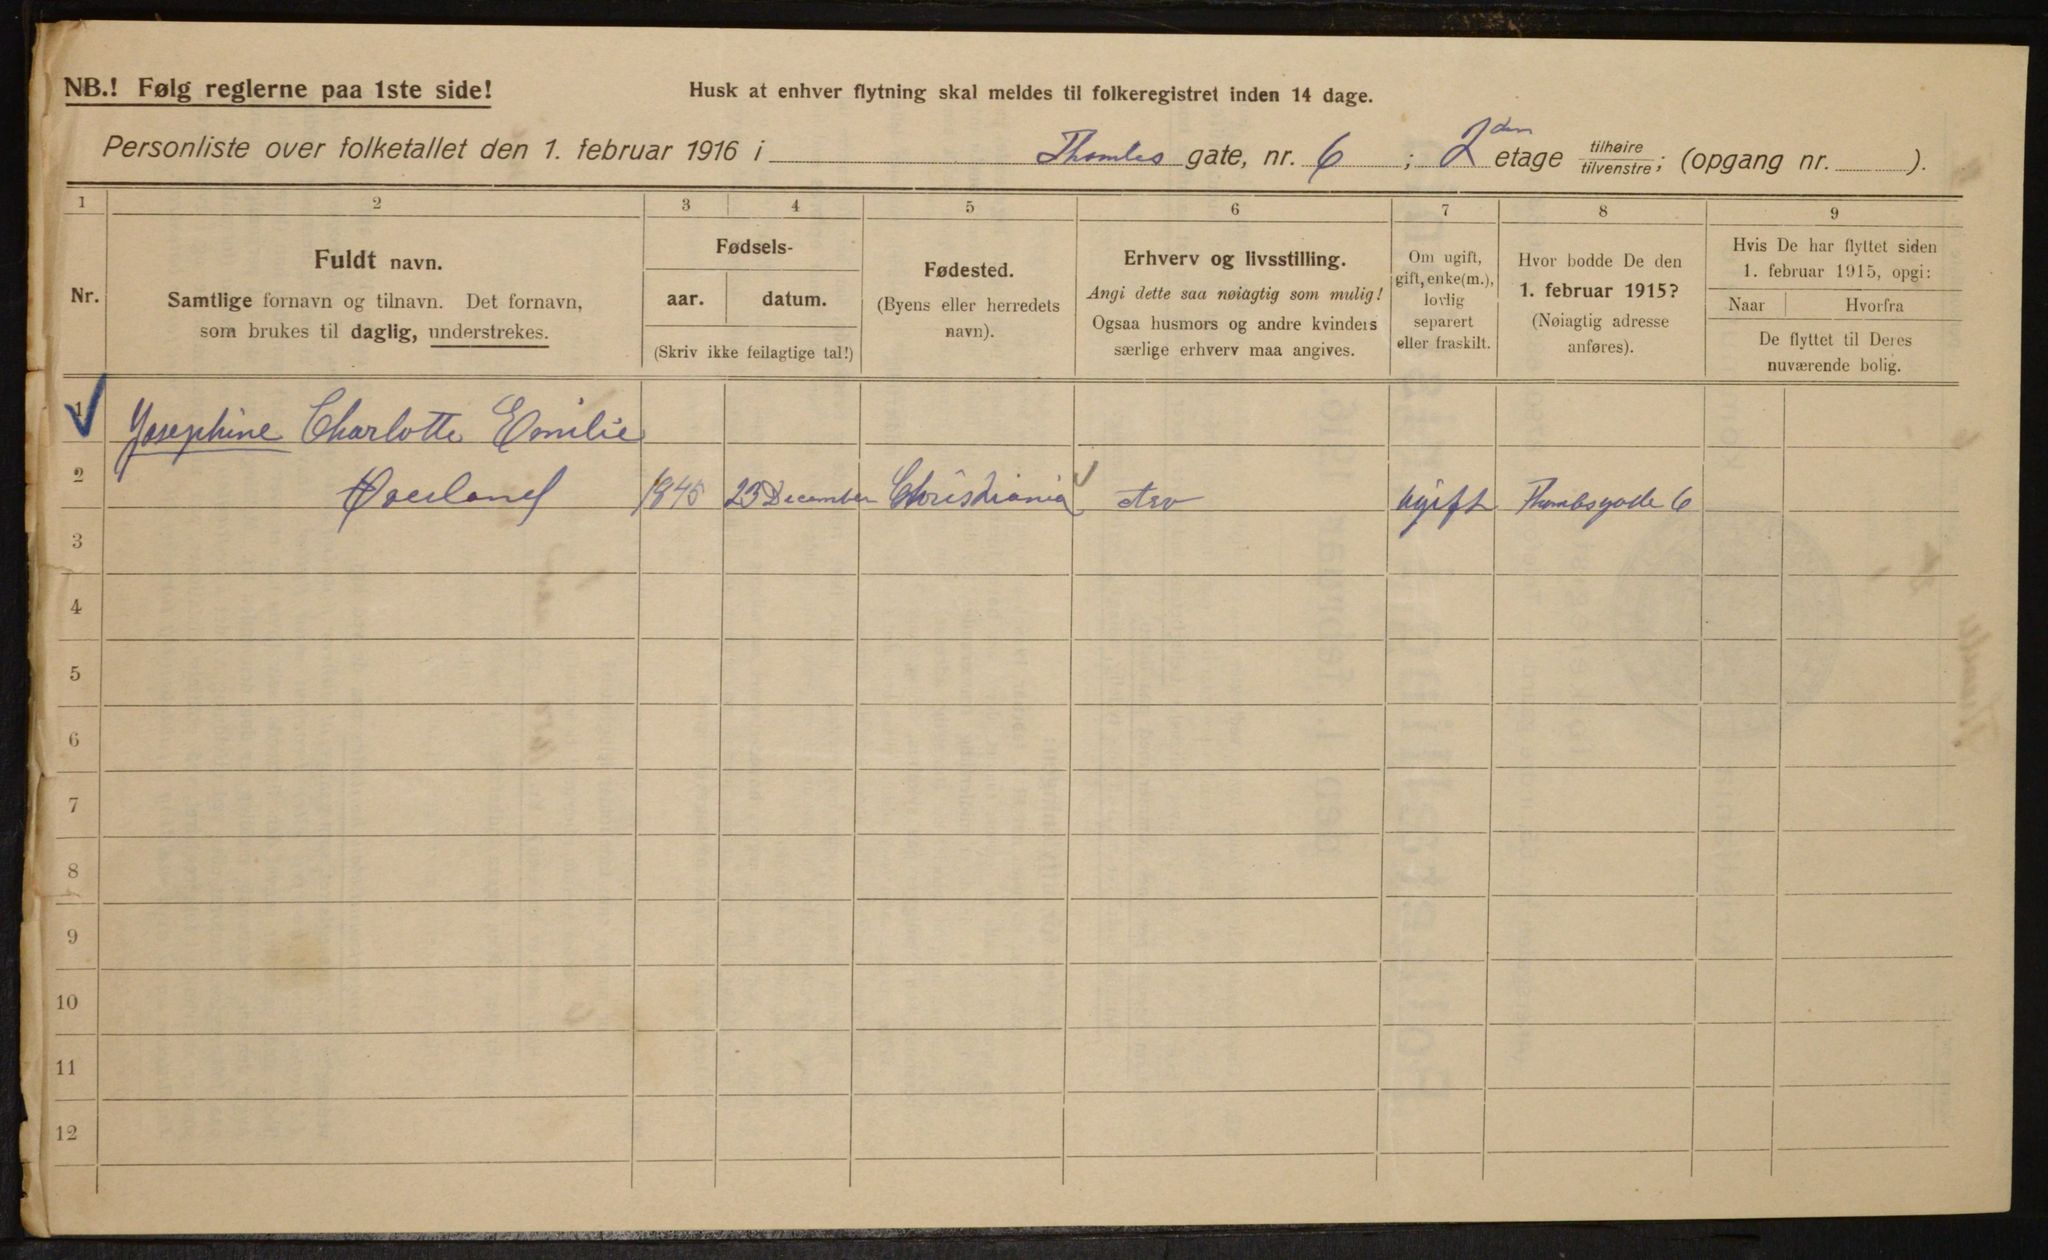 NB.! Følg reglerne paa 1ste side!
Husk at enhver flytning skal meldes til folkeregistret inden 14 dage.
Personliste over folketallet den 1. februar 1916 i Thomles gate, nr. 6 ; 2den etage tilhøire tilvenstre; (opgang nr. ).
1 2 3 4 5 6 7 8 9
Nr.
Fuldt navn.
Samtlige fornavn og tilnavn. Det fornavn,
som brukes til daglig, understrekes.
Fødsels-
aar. datum.
(Skriv ikke feilagtige tal!)
Fødested.
(Byens eller herredets
navn).
Erhverv og livsstilling.
Angi dette saa nøiagtig som mulig!
Ogsaa husmors og andre kvinders
særlige erhverv maa angives.
Om ugift,
gift, enke(m.),
lovlig
separert
eller fraskilt.
Hvor bodde De den
1. februar 1915?
(Nøiagtig adresse
anføres).
Hvis De har flyttet siden
1. februar 1915, opgi:
Naar Hvorfra
De flyttet til Deres
nuværende bolig.
1 Josephine Charlotte Emilie
2 Øverland 1845 23 December Christiania ugift Thomlesgade 6
3
4
5
6
7
8
9
10
11
12